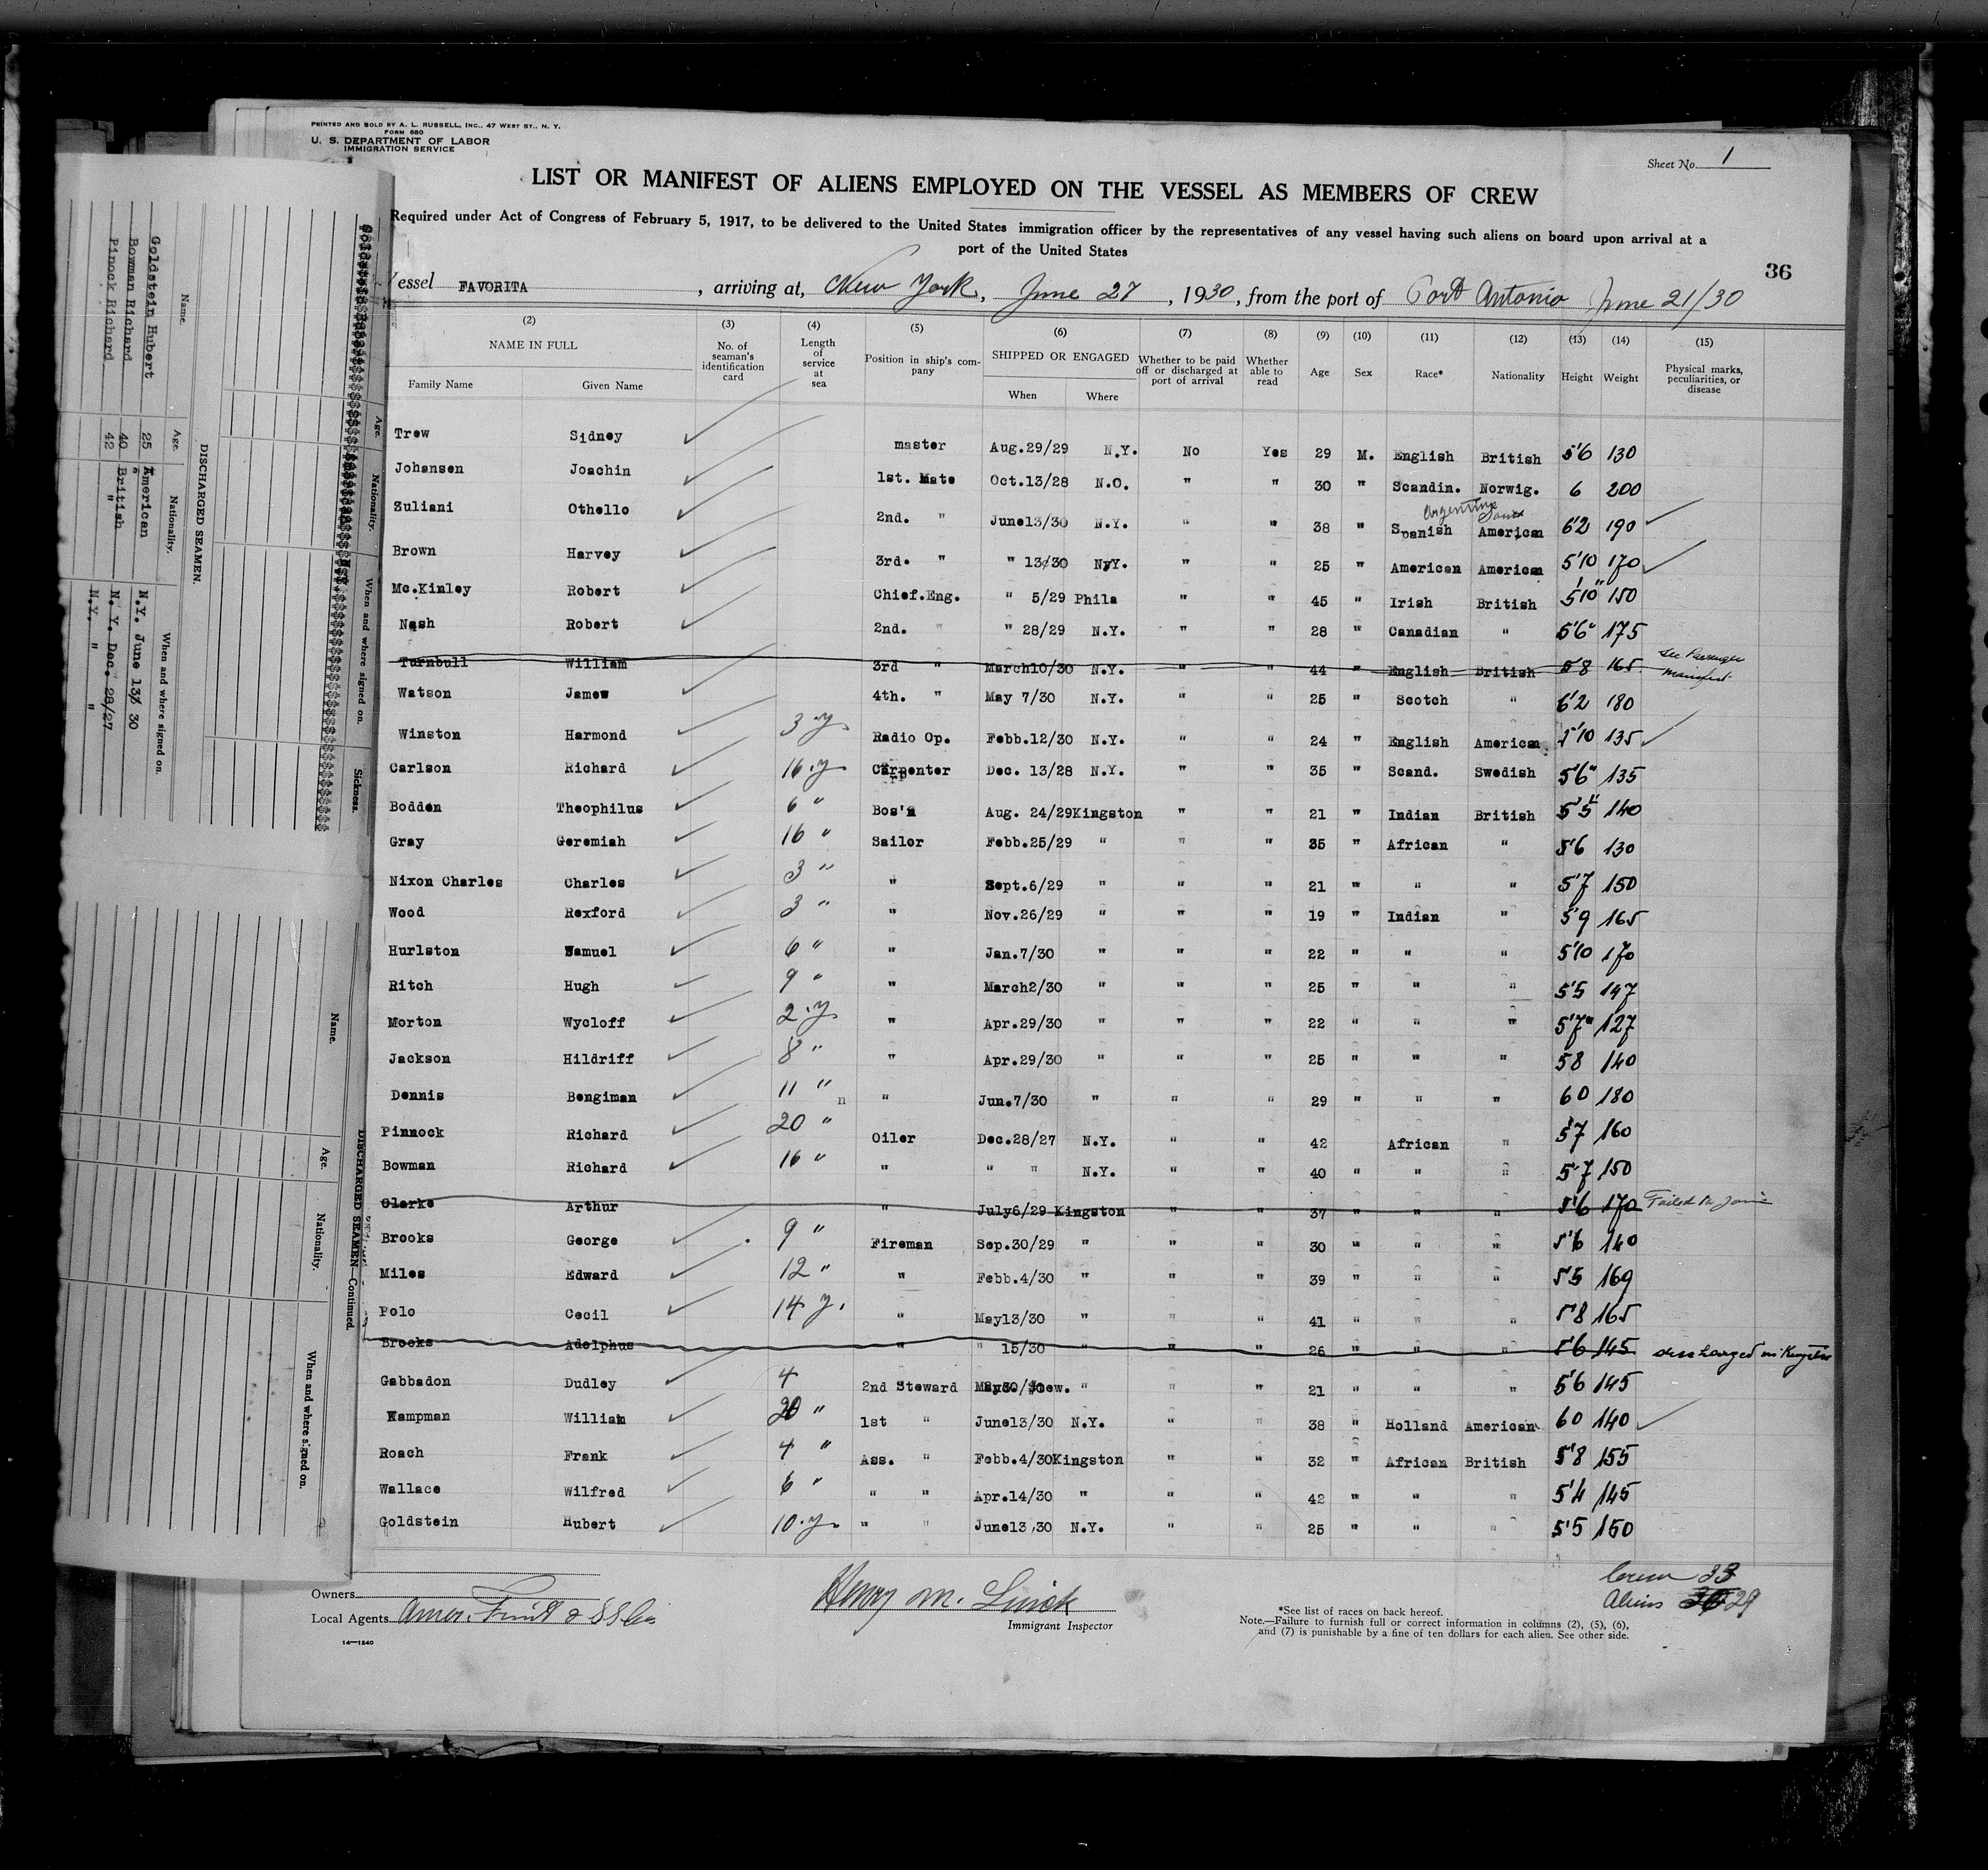 PRINTED AND SOLD BY A. L. RUSSELL, INC., 47 WEST ST., N. Y.
FORM 680
U. S. DEPARTMENT OF LABOR
IMMIGRATION SERVICE
Sheet No. 1
LIST OR MANIFEST OF ALIENS EMPLOYED ON THE VESSEL AS MEMBERS OF CREW
Required under Act of Congress of February 5, 1917, to be delivered to the United States immigration officer by the representatives of any vessel having such aliens on board upon arrival at a
port of the United States
36
essel FAVORITA, arriving at, New York, June 27, 1930, from the port of Port Antonio June 21/30
(2) (3) (4) (5) (6) (7) (8) (9) (10) (11) (12) (13) (14) (15)
NAME IN FULL No. of seaman's identification card Length of service at sea Position in ship's company SHIPPED OR ENGAGED Whether to be paid off or discharged at port of arrival Whether able to read Age Sex Race* Nationality Height Weight Physical marks, peculiarities, or disease
Family Name Given Name When Where
Trew Sidney master Aug.29/29 N.Y. No Yes 29 M. English British 5'6 130
Johansen Joachin 1st. Mate Oct.13/28 N.O. " " 30 " Scandin. Norwig. 6 200
Argentine South
Zuliani Othello 2nd. " June13/30 N.Y. " " 38 " Spanish American 6'2 190
Brown Harvey 3rd. " " 13/30 N.Y. " " 25 " American American 5'10 170
Mc.Kinley Robert Chief.Eng. " 5/29 Phila " " 45 " Irish British 5'10" 150
Nash Robert 2nd. " " 28/29 N.Y. " " 28 " Canadian " 5'6" 175
Turnbull William 3rd " March10/30 N.Y. " " 44 " English British 5'8 165 See Passenger Manifest
Watson James 4th. " May 7/30 N.Y. " " 25 " Scotch " 6'2 180
Winston Harmond 3 y. Radio Op. Febb.12/30 N.Y. " " 24 " English American 5'10 135
Carlson Richard 16.y Carpenter Dec. 13/28 N.Y. " " 35 " Scand. Swedish 5'6" 135
Bodden Theophilus 6 " Bos'n Aug. 24/29 Kingston " " 21 " Indian British 5'5" 140
Gray Geremiah 16 " Sailor Febb.25/29 " " " 35 " African " 5'6 130
Nixon Charles Charles 3 " " Sept.6/29 " " " 21 " " " 5'7 150
Wood Rexford 3 " " Nov.26/29 " " " 19 " Indian " 5'9 165
Hurlston Samuel 6 " " Jan.7/30 " " " 22 " " " 5'10 170
Ritch Hugh 9 " " March2/30 " " " 25 " " " 5'5 147
Morton Wycloff 2.y. " Apr.29/30 " " " 22 " " " 5'7" 127
Jackson Hildriff 8 " " Apr.29/30 " " " 25 " " " 58 140
Dennis Bengiman 11 " n " Jun.7/30 " " " 29 " " " 60 180
Pinnock Richard 20 " Oiler Dec.28/27 N.Y. " " 42 African " 5'7 160
Bowman Richard 16 " " " " N.Y. " " 40 " " " 5'7 150
Clarke Arthur " July6/29 Kingston " " 37 " " " 5'6 170 Failed to Join
Brooks George 9 " Fireman Sep.30/29 " " " 30 " " " 5'6 140
Miles Edward 12 " " Febb.4/30 " " " 39 " " " 5'5 169
Polo Cecil 14 y. " May13/30 " " " 41 " " " 5'8 165
Brooks Adolphus " " 15/30 " " " 26 " " " 5'6 145 discharged in Kingston
Gabbadon Dudley 4 2nd Steward " " " 21 " " " 5'6 145
Kampman William 20 " 1st " June13/30 N.Y. " " 38 " Holland American 60 140
Roach Frank 4 " Ass. " Febb.4/30 Kingston " " 32 " African British 5'8 155
Wallace Wilfred 6 " " " Apr.14/30 " " " 42 " " " 5'4 145
Goldstein Hubert 10.y. " " June13,30 N.Y. " " 25 " " " 5'5 150
Owners
Local Agents Amer. Fruit & SS Co
14—1240
Henry M. Linck
Immigrant Inspector
*See list of races on back hereof.
Note.—Failure to furnish full or correct information in columns (2), (5), (6),
and (7) is punishable by a fine of ten dollars for each alien. See other side.
Crew 33
Aliens 29
DISCHARGED SEAMEN.
Name. Age. Nationality. When and where signed on.
Goldstein Hubert 25 American N.Y. June 13/ 30
Bowman Richard 40 British N.Y. Dec. 28/27
Pinock Richard 42 " N.Y. "
Age. Nationality. When and where signed on. Sickness.
DISCHARGED SEAMEN—Continued.
Name. Age. Nationality. When and where signed on.